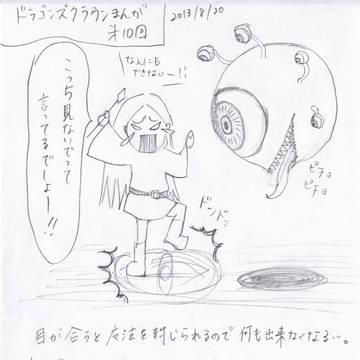 ドラゴンズクラウンまんが
第10回
2013/8/20
なんにも
できないー!!
こっち見ないでって
言ってるでしょー!!
ピチョ
ピチョ
ドンドン
目が合うと魔法を封じられるので何も出来なくなる…。